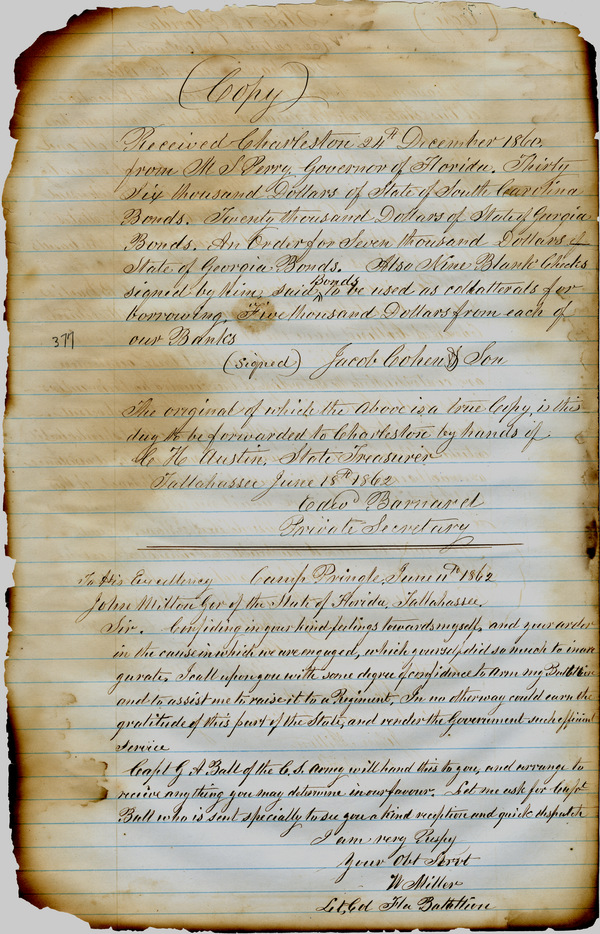 (Copy)
Received Charleston 24th December 1860.
from M S Perry Governor of Florida. Thirty
Six thousand Dollars of State of South Carolina
Bonds. Twenty thousand Dollars of State of Gorgia
Bonds. An Order for Seven thousand Dollars of
State of Georgia Bonds. Also Nine Blank Checks
signed by him, said Bonds to be used as collatterals for
borrowing Five thousand Dollars from each of
377
our Banks
(signed) Jacob Cohen & Son
The original of which the above is a true Copy, is this
day to be forwarded to Charleston by hands of
C H Austin, State Treasurer
Tallahassee June 18th 1862
Edwd Barnard
Private Secretary
To His Excellency Camp Pringle, June 11th 1862
John Milton Gov of the State of Florida, Tallahassee.
Sir. Confiding in your kind feelings towards myself, and your ardor
in the cause in which we are engaged, which yourself did so much to inau
gurate, I call upon you with some degree of confidence to arm my Battalion
and to assist me to raise it to a Regiment, In no other way could earn the
gratitude of this part of the State, and render the Government such efficient
service
Capt G A Ball of the C. S. Army will hand this to you, and arrange to
receive any thing you may determine in our favour. Let me ask for Capt
Ball who is sent specially to see you a kind reception and quick dispatch
I am very Respy
Your Obt Servt
W Miller
Lt Col Fla Battalion